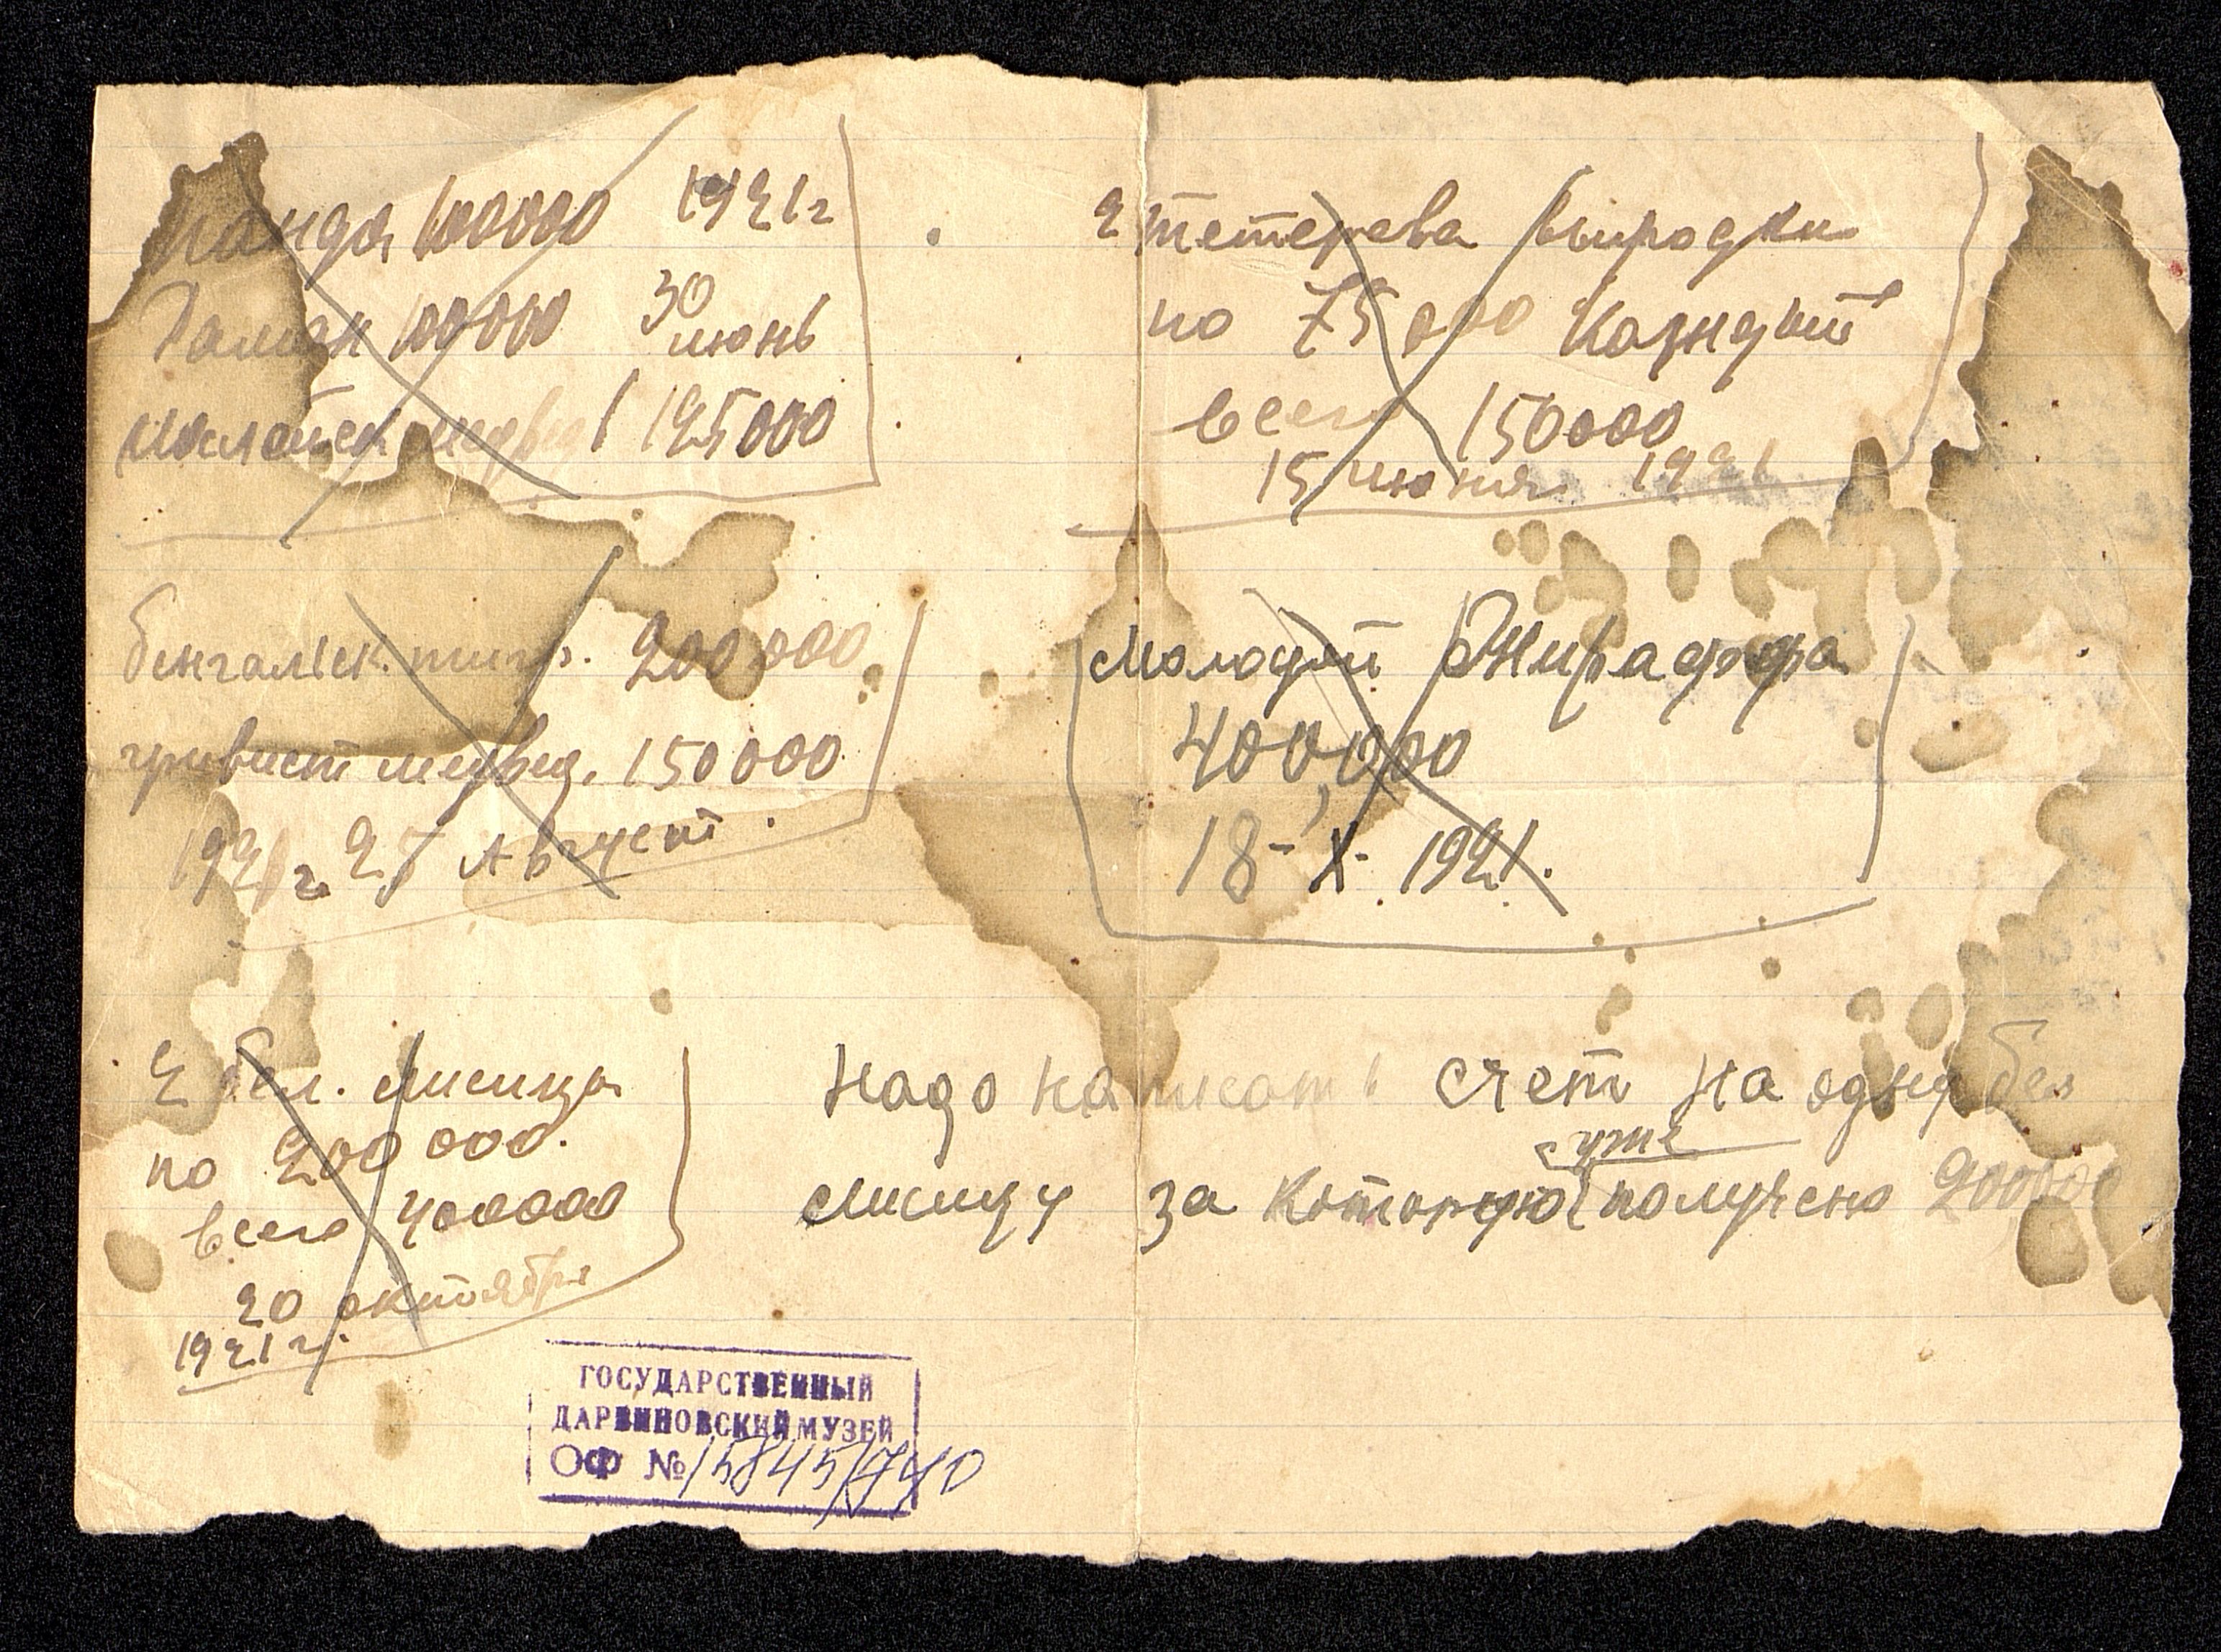 Панда 100000 1921г
Даман 100000 30 июнь
малайск медвед 125000
2 тетерева выродки
по 75000 Каждый
всего 150000
15 июня 1921
бенгальск. тигр. 200 000
гривист медвед. 150 000
1921 г. 25 Август.
Молодой Жираффа
400,000
18 - X - 1921.
2 бел. лисицы
по 200 000.
всего 400000
20 октября
1921 г.
Надо написать счет на одну бел
уже
лисицу за которую получено 200000
ГОСУДАРСТВЕННЫЙ
ДАРВИНОВСКИЙ МУЗЕЙ
ОФ № 15845/740